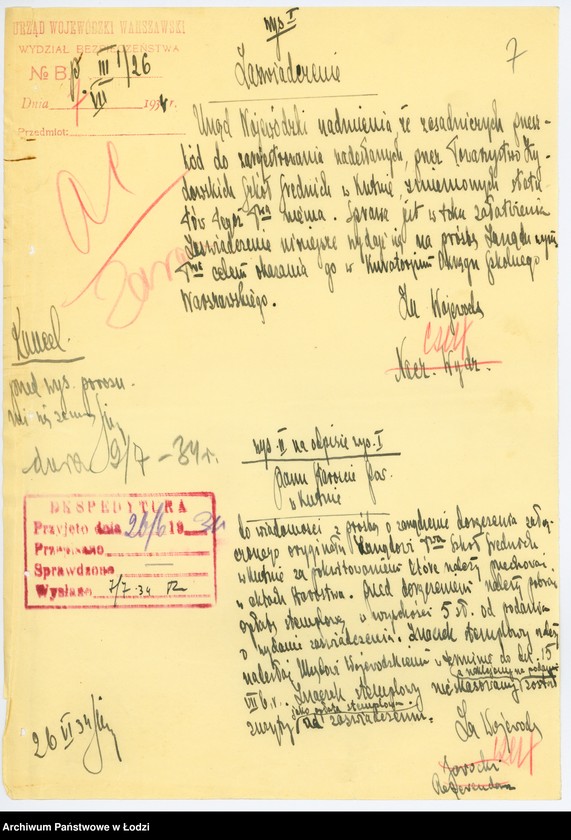 wys I
7
URZĄD WOJEWÓDZKI WARSZAWSKI
WYDZIAŁ BEZPIECZEŃSTWA
№ B. III 1/26
Dnia 7 VII 1934 r.
Przedmiot:
Zaświadczenie
Urząd Wojewódzki nadmienia że zasadniczych przesz-
kód do zarejestrowania nadesłanych, przez Towarzystwo Ży-
dowskich Szkół Średnich w Kutnie zmienionych statu-
tów tegoż T-wa niema. Sprawa jest w toku załatwienia
Zaświadczenie niniejsze wydaje się na prośbę Zarządu wym.
T-wa celem okazania go w Kuratorjum Okręgu Szkolnego
Warszawskiego.
Za Wojewodę
Nacz. Wydz.
Kancel.
przed wys. porozu-
mieć się ze mną
dnia 2/7 - 34 r.
wys. II na odpisie wys. I
Panu Staroście Pow.
w Kutnie
do wiadomości z prośbą o zarządzenie doręczenia załą-
czonego oryginału Zarządowi T-wa Szkół Średnich
w Kutnie za pokwitowaniem które należy przechować
w aktach Starostwa. Przed doręczeniem należy pobrać
opłatę stemplową w wysokości 5 zł. od podania
o wydanie zaświadczenia. Znaczek stemplowy należy
nadesłać Urzędowi Wojewódzkiemu w terminie do dn. 15
VII b.r. Znaczek stemplowy nieskasowany został
a naklejony na podaniu
jako opłata stemplowa
zużyty na zaświadczenie.
Za Wojewodę
Jarocki
Referendarz
EKSPEDYTURA
Przyjęto dnia 26/6 1934
Przepisano
Sprawdzono
Wysłano 7/7.34
26 VI 34
Archiwum Państwowe w Łodzi